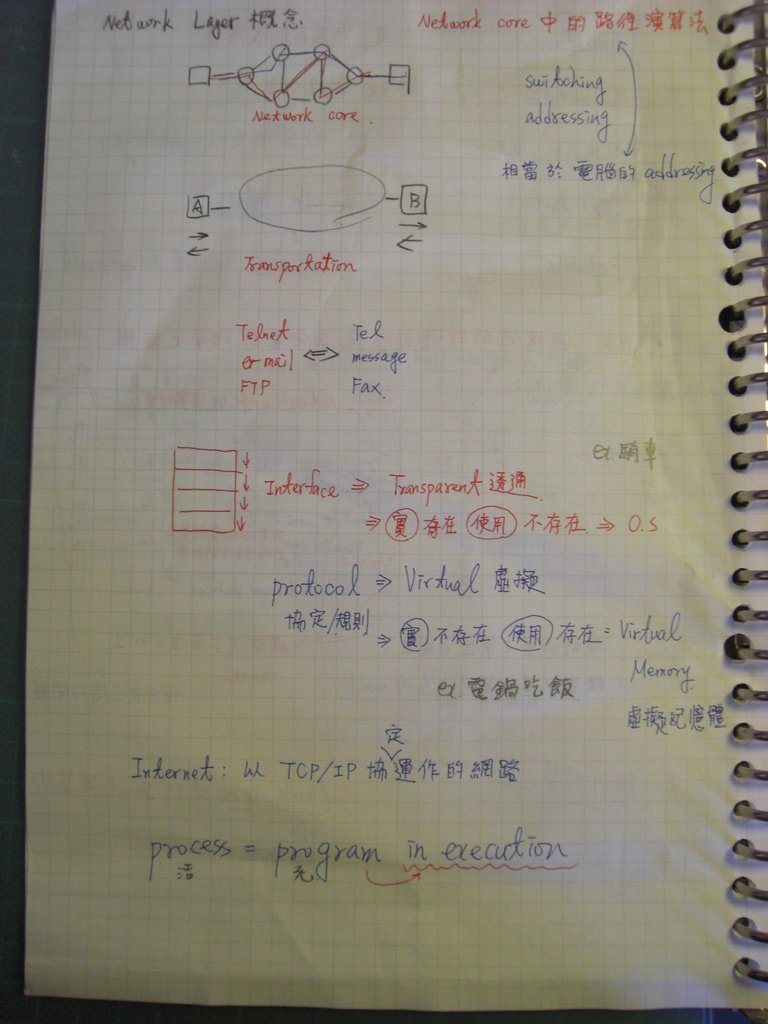 Network Layer 概念
Network core 中的路徑演算法
switching
addressing
Network core
相當於電腦的 addressing
A B
Transportation
Telnet Tel
e-mail <=> message
FTP Fax
ex. 騎車
Interface ⇒ Transparent 透通
⇒ 實 存在 使用 不存在 ⇒ O.S
protocol ⇒ Virtual 虛擬
協定/規則
⇒ 實 不存在 使用 存在 = Virtual
Memory
虛擬記憶體
ex. 電鍋吃飯
定
Internet: 以 TCP/IP 協運作的網路
process = program in execution
活